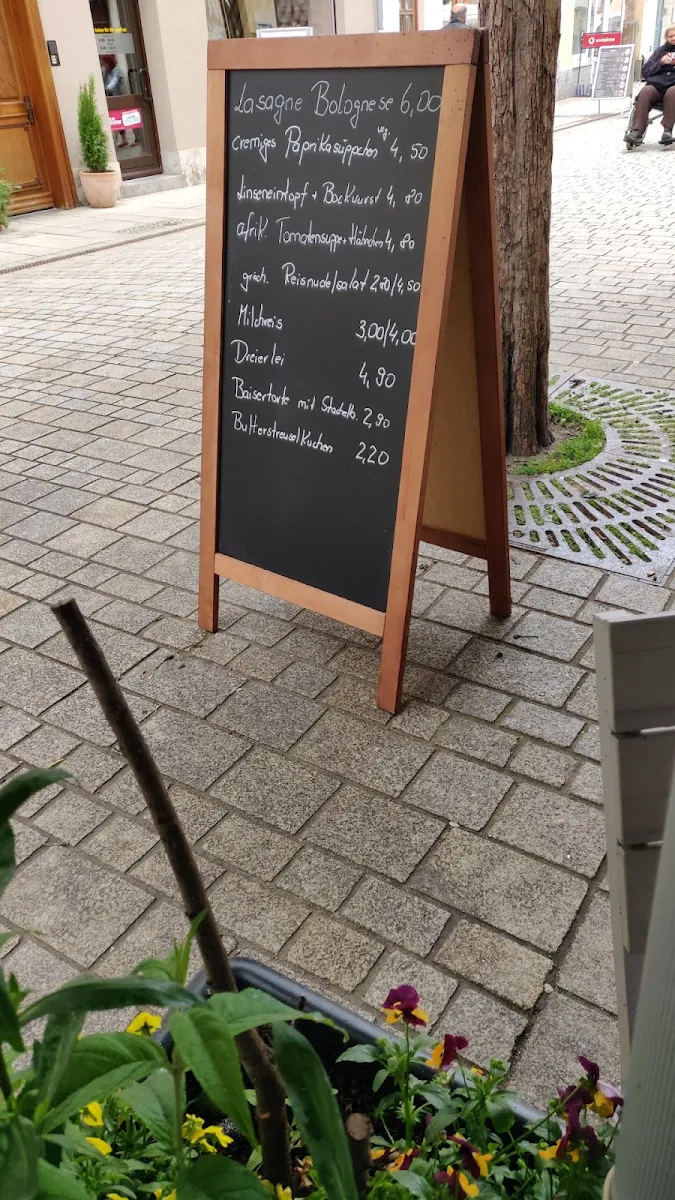 Lasagne Bolognese 6,00
cremiges Paprikasüppchen veg. 4,50
Linseneintopf + Bockwurst 4,80
afrik. Tomatensuppe + Hähnchen 4,80
griech. Reisnudelsalat 2,80/4,50
Milchreis 3,00/4,00
Dreierlei 4,90
Baisertorte mit Stachelb. 2,90
Butterstreuselkuchen 2,20